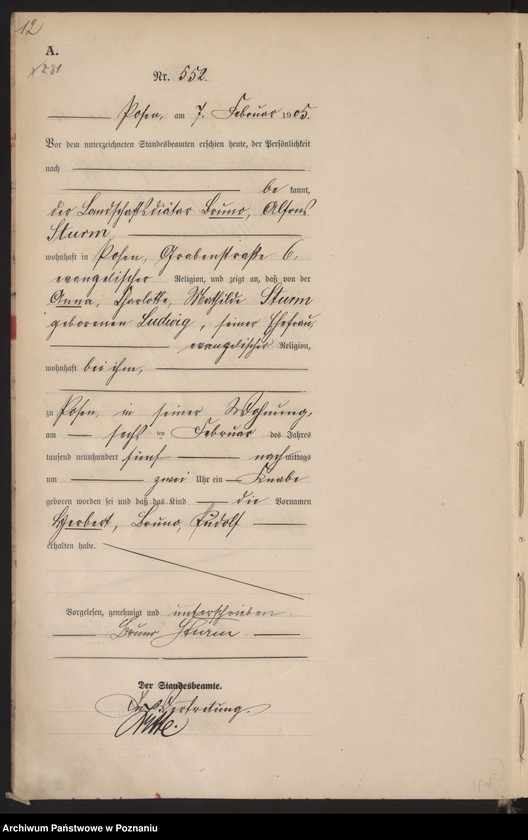 12
A.
Nr. 552.
Posen, am 7. Februar 1905.
Vor dem unterzeichneten Standesbeamten erschien heute, der Persönlichkeit
nach
be kannt,
der Landschaftsdiätar Bruno, Alfons
Sturm,
wohnhaft in Posen, Grabenstraße 6,
evangelischer Religion, und zeigt an, daß von der
Anna, Charlotte, Mathilde Sturm
geborenen Ludwig, seiner Ehefrau,
evangelischer Religion,
wohnhaft bei ihm,
zu Posen, in seiner Wohnung,
am sechsten Februar des Jahres
tausend neunhundert fünf nachmittags
um zwei Uhr ein Knabe
geboren worden sei und daß das Kind die Vornamen
Herbert, Bruno, Rudolf
erhalten habe.
Vorgelesen, genehmigt und unterschrieben.
Bruno Sturm
Der Standesbeamte.
In Vertretung.
Archiwum Państwowe w Poznaniu